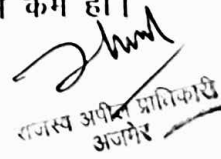 कम हो।
राजस्व अपील प्राधिकारी
अजमेर